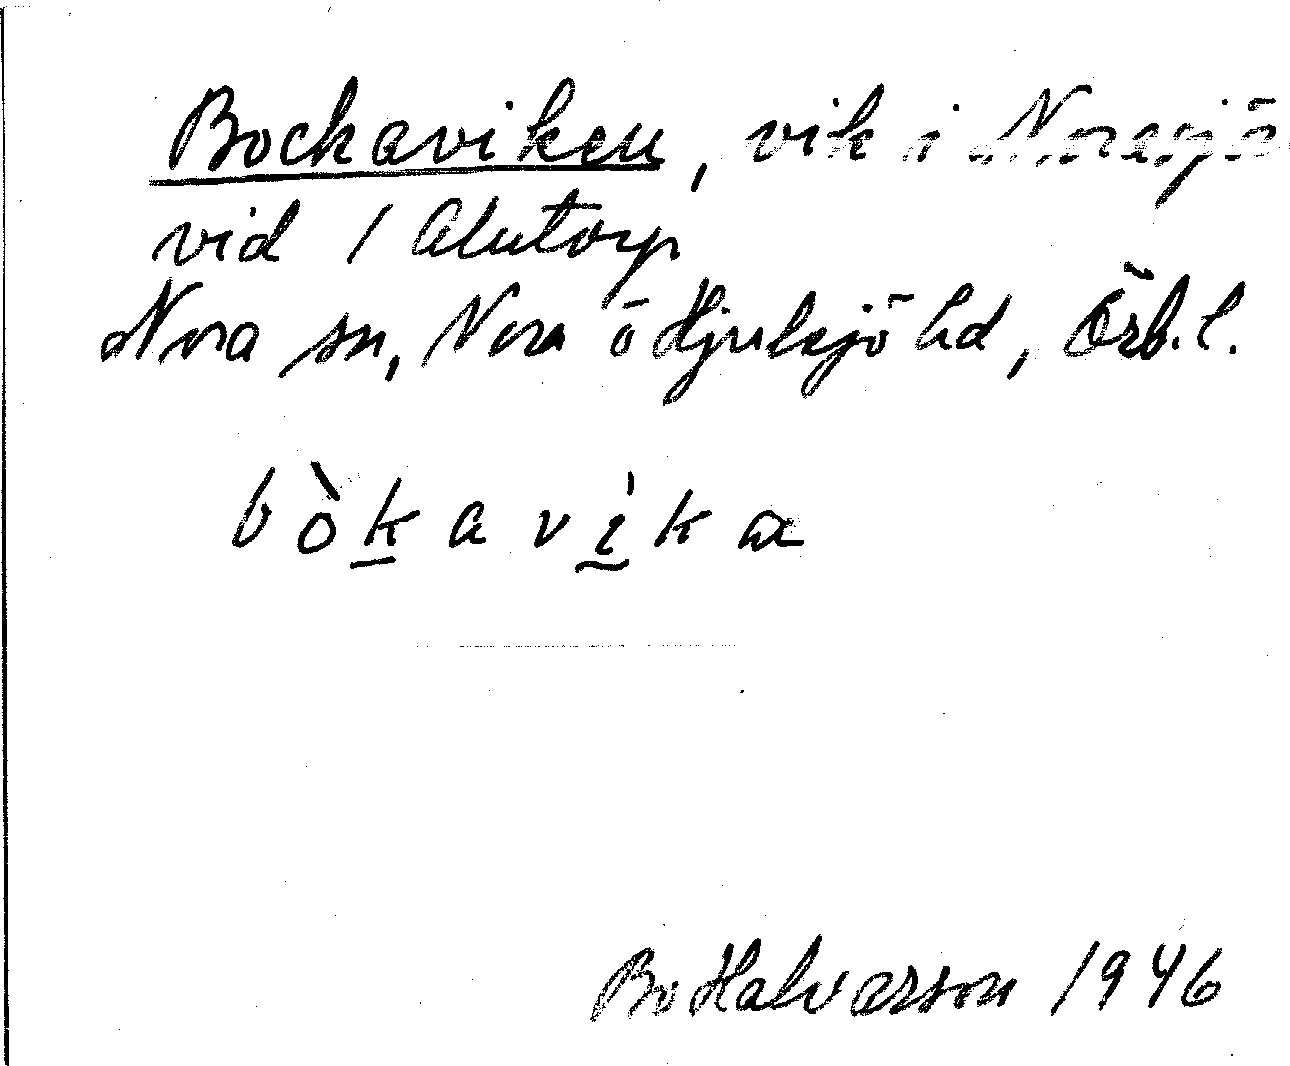 Bockaviken, vik i Norasjö
vid / Alntorp
Nora sn, Nora o Hjulsjö hd, Örb. l.
bò̱kavi̱̇ka
Bo Halvarson 1946